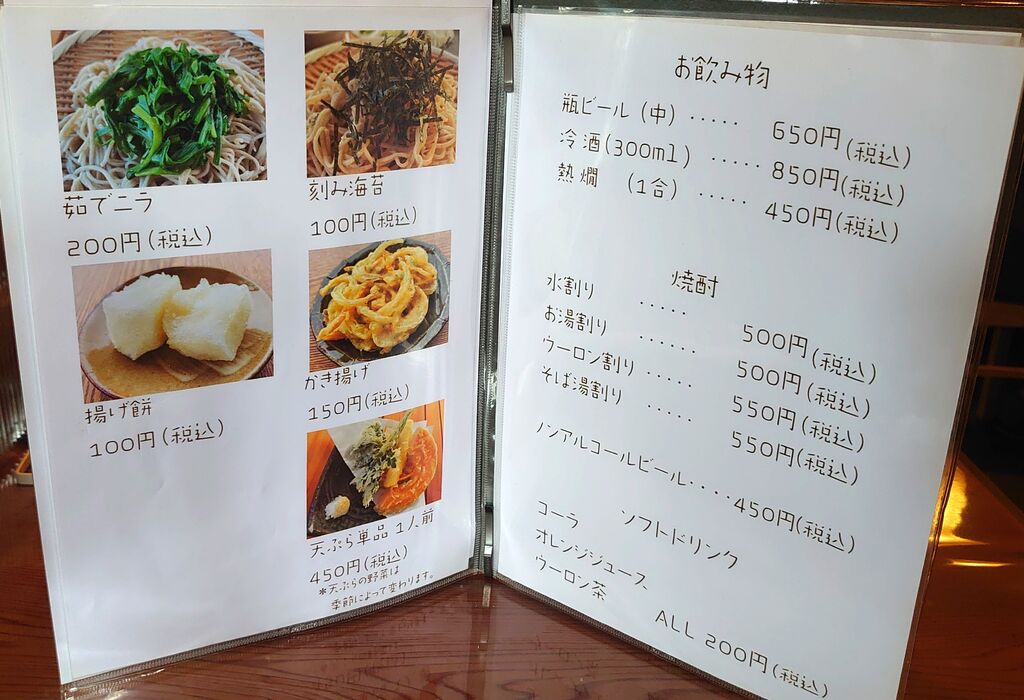 茹でニラ
200円(税込)
刻み海苔
100円(税込)
揚げ餅
100円(税込)
かき揚げ
150円(税込)
天ぷら単品 1人前
450円(税込)
*天ぷらの野菜は
季節によって変わります。
お飲み物
瓶ビール (中) ・・・・・ 650円(税込)
冷酒(300ml) ・・・・・ 850円(税込)
熱燗 (1合) ・・・・・ 450円(税込)
焼酎
水割り ・・・・・ 500円(税込)
お湯割り ・・・・・・ 500円(税込)
ウーロン割り ・・・・・ 550円(税込)
そば湯割り ・・・・・ 550円(税込)
ノンアルコールビール・・・・・450円(税込)
ソフトドリンク
コーラ
オレンジジュース
ウーロン茶
ALL 200円(税込)